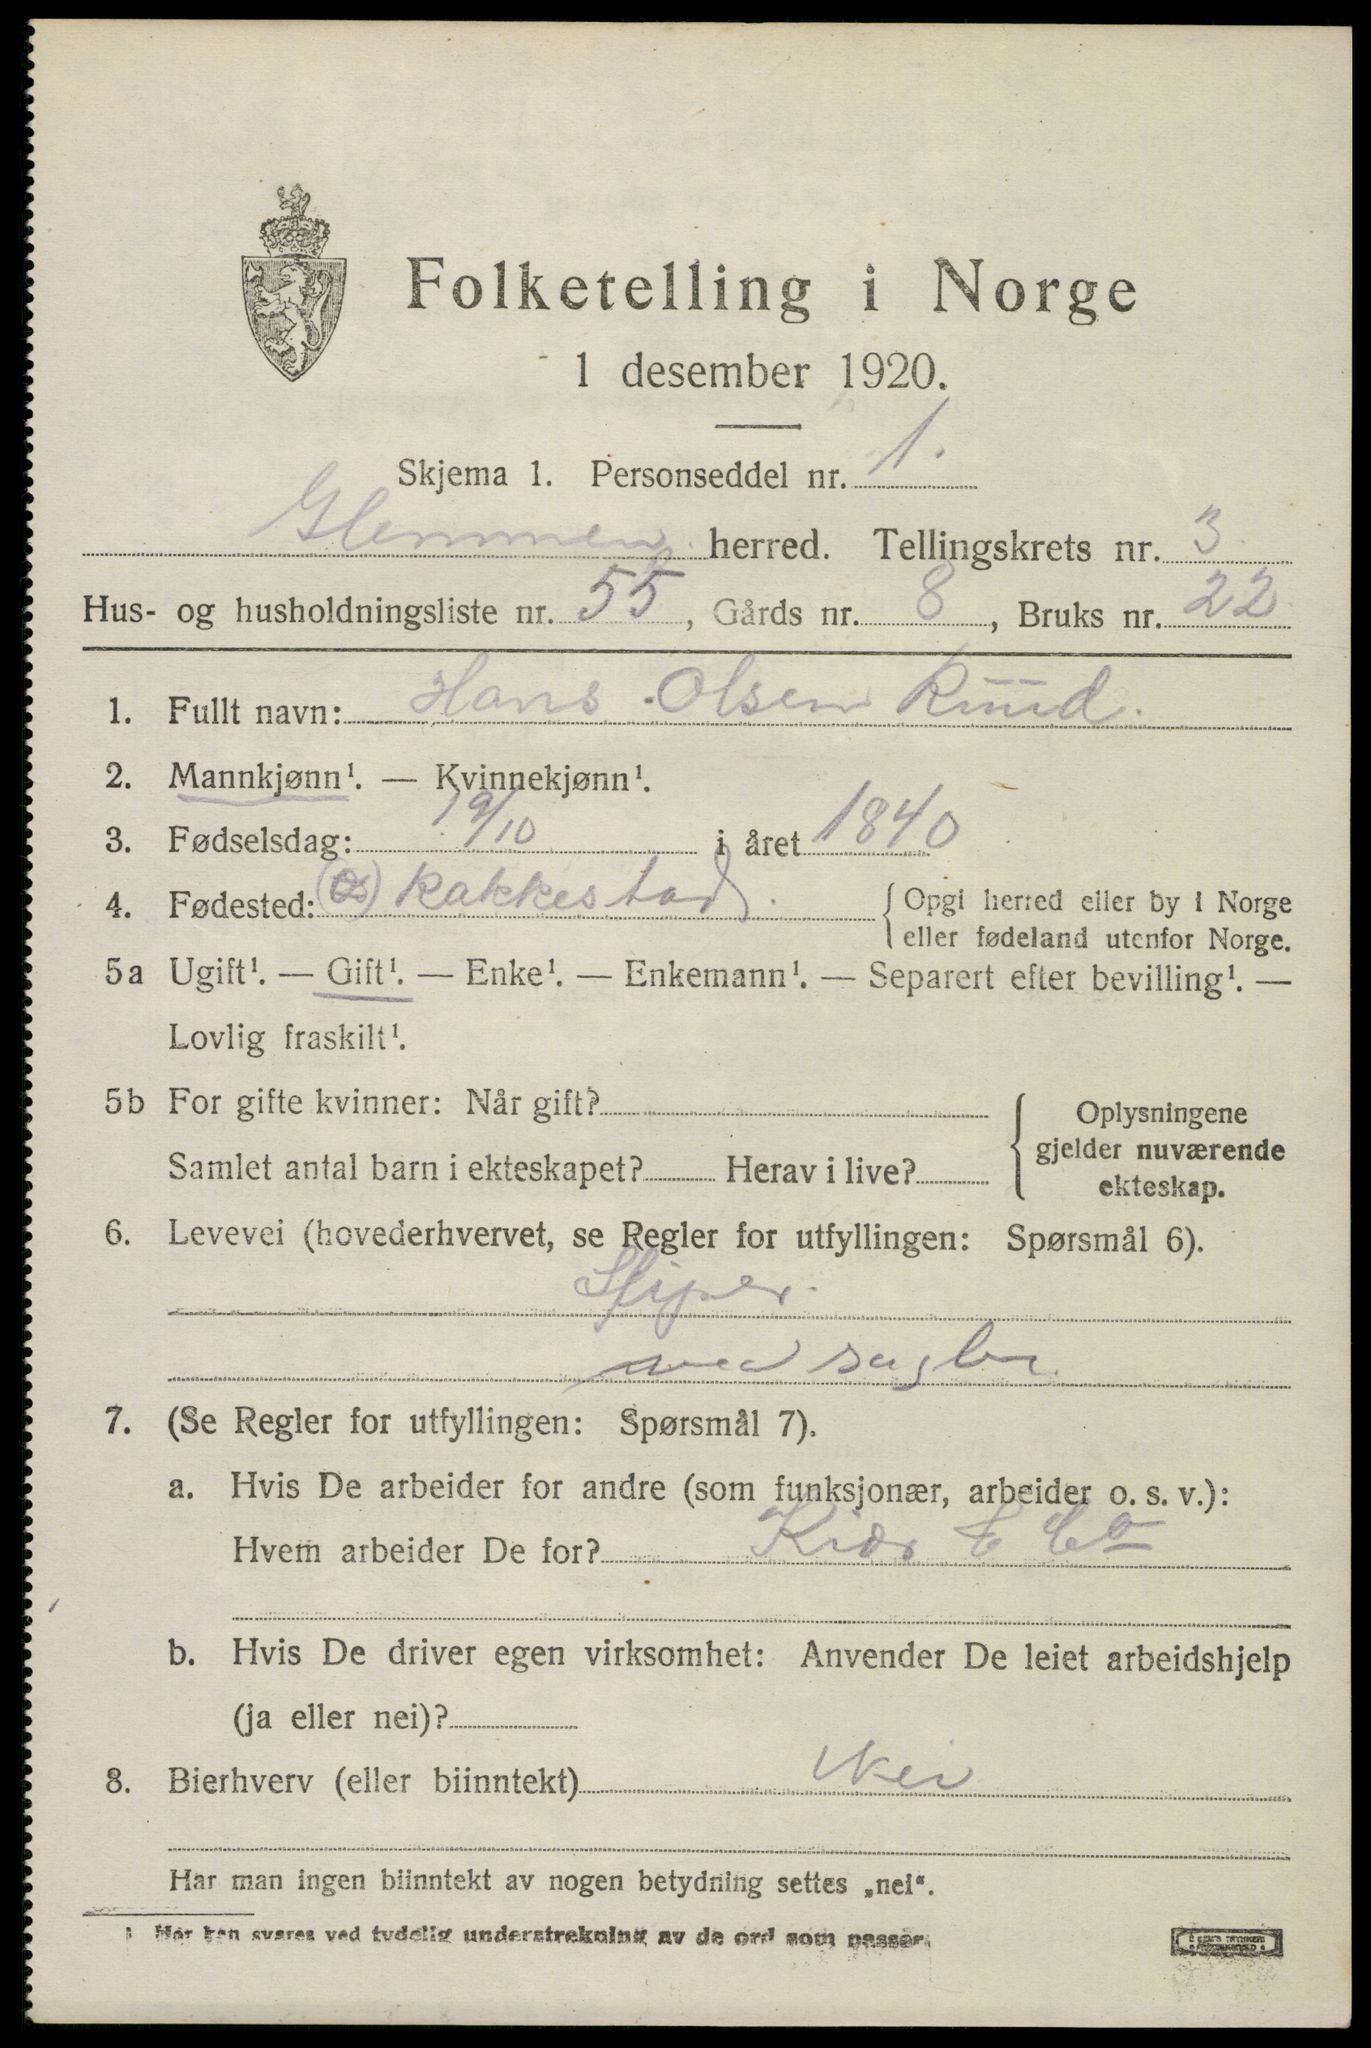 Folketelling i Norge
1 desember 1920.
Skjema 1. Personseddel nr. 1.
Glemmen herred. Tellingskrets nr. 3
Hus- og husholdningsliste nr. 55, Gårds nr. 8, Bruks nr. 22
1. Fullt navn: Hans Olsen Ruud.
2. Mannkjønn¹. — Kvinnekjønn¹.
3. Fødselsdag: 19/10 i året 1840
4. Fødested: (Os) Rakkestad. { Opgi herred eller by i Norge
eller fødeland utenfor Norge.
5a Ugift¹. — Gift¹. — Enke¹. — Enkemann¹. — Separert efter bevilling¹. —
Lovlig fraskilt¹.
5b For gifte kvinner: Når gift?
Samlet antal barn i ekteskapet? Herav i live?
Oplysningene
gjelder nuværende
ekteskap.
6. Levevei (hovederhvervet, se Regler for utfyllingen: Spørsmål 6).
ved sagbr
7. (Se Regler for utfyllingen: Spørsmål 7).
a. Hvis De arbeider for andre (som funksjonær, arbeider o. s. v.):
Hvem arbeider De for? Kiær & Co
b. Hvis De driver egen virksomhet: Anvender De leiet arbeidshjelp
(ja eller nei)?
8. Bierhverv (eller biinntekt) Nei
Har man ingen biinntekt av nogen betydning settes „nei“.
¹ Her kan svares ved tydelig understrekning av de ord som passer.